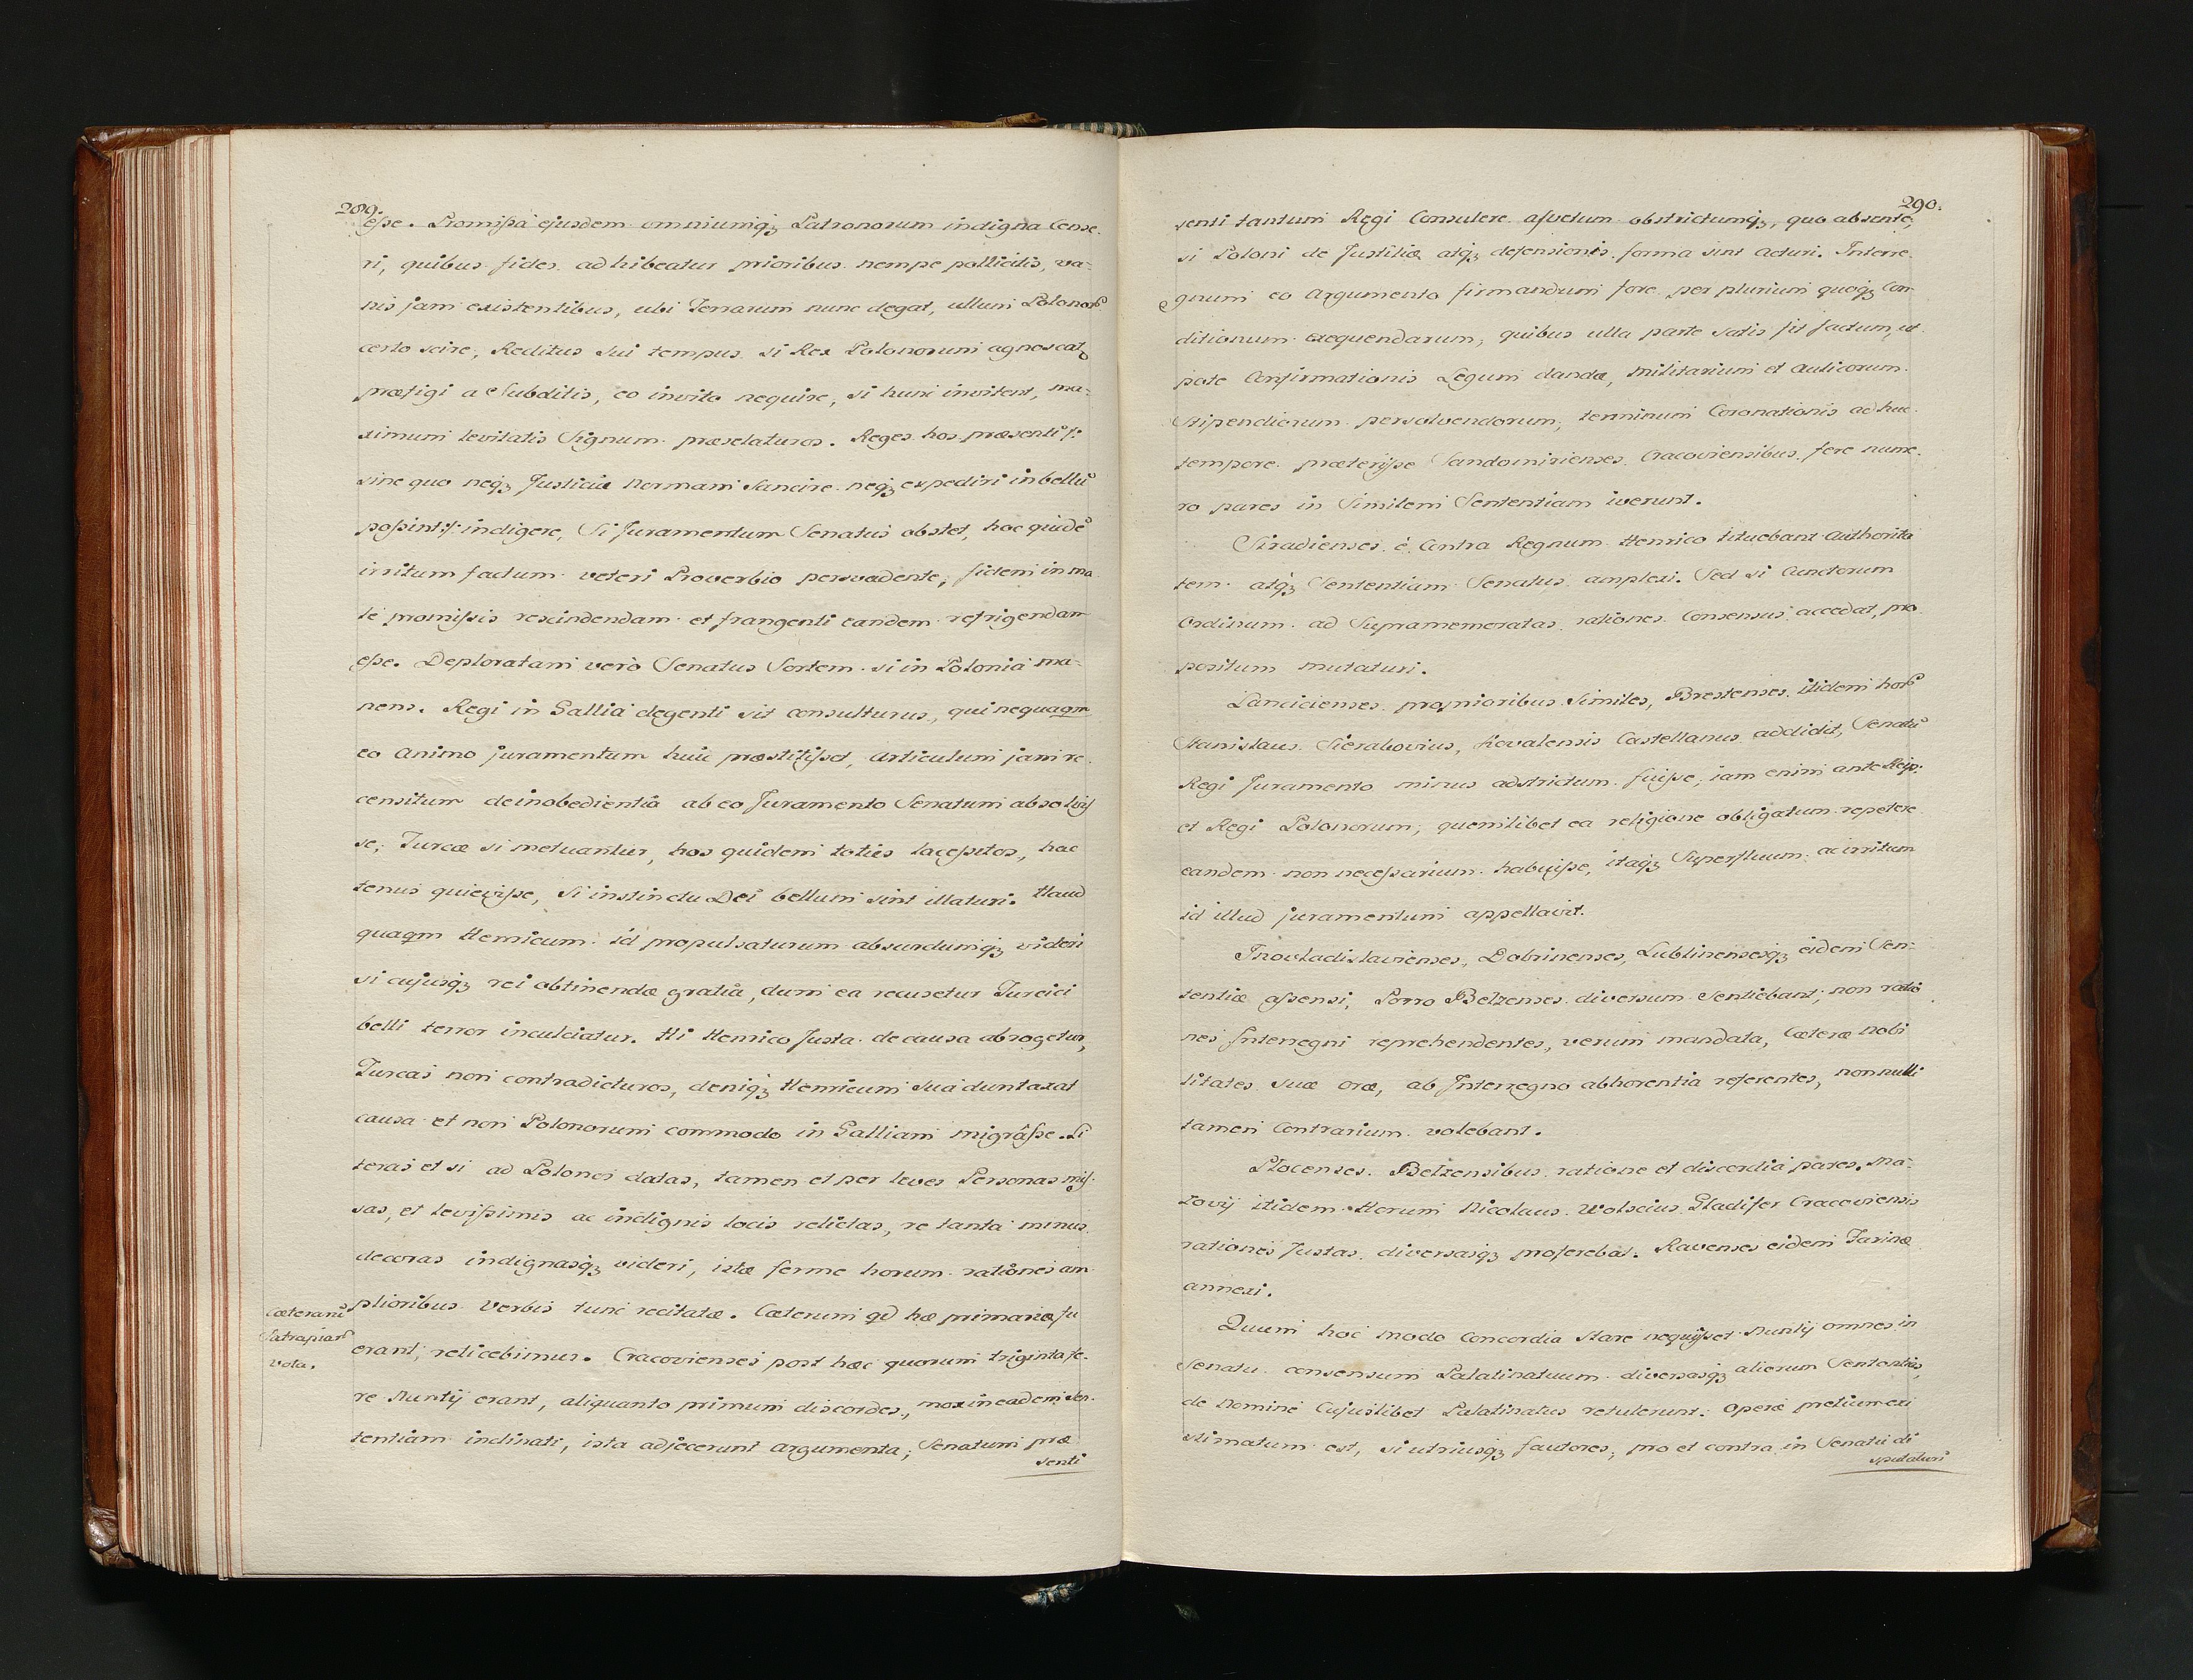 289.
esse. Promissa ejusdem omniumq₃ Patronorum indigna Cense-
ri, quibus fides adhibeatur prioribus nempe pollicitis, va-
nis jam existentibus, ubi Terrarum nunc degat, ullum Polonor
certo scire, Reditus sui tempus si Rex Polonorum agnoscat
præfigi a Subditis, eo invito nequire, si hunc invitent, ma-
ximum levitatis Signum præselaturos. Reges hos præsenti /:
sine quo neq₃ Justiciæ Normam Sancire neq₃ expediri in bellū
possint :/ indigere, Si Juramentum Senatus obstet, hoc quidē
irritum factum veteri Proverbio persvadente, fidem in ma-
le promissis rescindendam et frangenti eandem refrigendam
esse. Deploratam verò Senatus Sortem si in Polonia ma-
nens Regi in Gallia degenti sit consulturus, qui nequaqm
eo Animo juramentum huic præstitisset, Articulum jam re-
censitum de inobedientia ab eo Juramento Senatum absolvis
se; Turcæ si metuantur, hos quidem toties lacessitos, hac
tenus quievisse, Si instinctu Dei bellum sint illaturi. Haud
quaqm Henricum id propulsaturum absurdumq₃ videri
si cujusq₃ rei obtinendæ gratia, dum ea recusetur Turcici
belli terror inculciatur. Hi Henrico Justa de causa abrogetur,
Turcas non contradicturos, deniq₃ Henricum sua duntaxat
causa et non Polonorum commodo in Galliam migrasse. Li
teras et si ad Polonos datas, tamen et per leves Personas mis-
sas, et levissimis ac indignis locis relictas, re tanta minus
decoras indignasq₃ videri, istæ ferme horum rationes am-
plioribus verbis tunc recitatæ. Cæterum qd hæ primariæ fu
Cæterarū
Satrapiar
vota.
erant, reticebimus. Cracovienses post hæc quorum triginta fe-
re Nuntij erant, aliquanto primum discordes, mox in eadem sen-
tentiam inclinati, ista adjecerunt argumenta, Senatum præ
senti
290.
senti tantum Regi Consulere assvetum obstrictumq₃, quo absente,
si Poloni de Justitiæ atq₃ defensionis forma sint acturi. Interre-
gnum eo Argumento firmandum fore per plurium quoq₃ Con-
ditionum exequendarum, quibus ulla parte satis sit factum, ut
pote Confirmationis Legum dandæ, Militarium et Aulicorum
Stipendiorum persolvendorum, terminum Coronationis ad huc
tempore præterisse Sandomirienses Cracoviensibus fere nume-
ro pares in Similem Sententiam iverunt.
Siradienses è Contra Regnum Henrico tituebant Authorita
tem atq₃ Sententiam Senatus amplexi. Sed si Cunctorum
Ordinum ad Supramemoratas rationes Consensus accedat, pro
positum mutaturi.
Lancicienses propioribus Similes, Brestenses itidem hor
Stanislaus Sierakovius, Kovalensis Castellanus addidit, Senatū
Regi Juramento minus adstrictum fuisse, iam enim ante Reip:
et Regi Polonorum, quemlibet ea religione obligatum repetere
eandem non necessarium habuisse, itaq₃ Superfluum ac irritum
id illud juramentum appellavit.
Inovladislavienses, Dobrinenses, Lublinensesq₃ eidem Sen-
tentiæ assensi, Porro Belzenses diversum Sentiebant, non ratio
nes Interregni reprehendentes, verum mandata, Cæteræ nobi
litates suæ oræ, ab Interregno abhorentia referentes, nonnulli
tamen Contrarium volebant.
Plocenses Belzensibus ratione et discordia pares, Ma-
zovij itidem Horum Nicolaus Wolscius Gladifer Cracoviensis
rationes Justas diversasq₃ proferebat. Ravenses eidem Farinæ
annexi.
Quum hoc modo Concordia stare nequisset Nuntij omnes in
Senatu consensum Palatinatuum diversasq₃ aliorum Sententias,
de Nomine Cujuslibet Palatinatus retulerunt. Operæ pretium exi
stimatum est, si utriusq₃ fautores, pro et contra in Senatu di
sputaturi